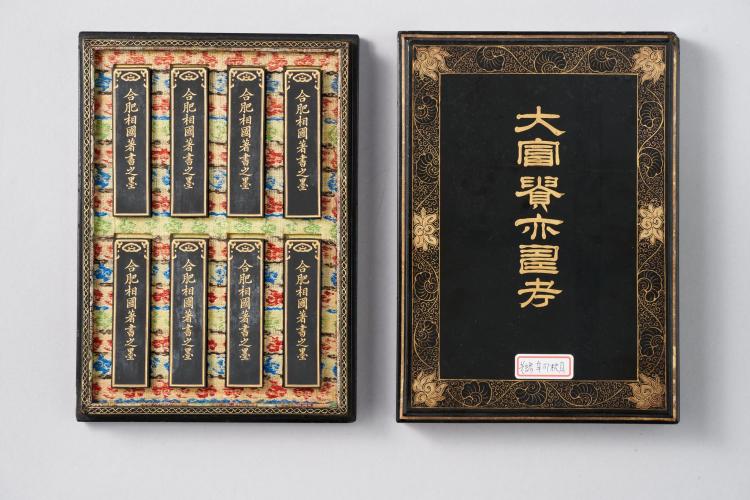 合肥相國著書之墨
合肥相國著書之墨
合肥相國著書之墨
合肥相國著書之墨
合肥相國著書之墨
合肥相國著書之墨
合肥相國著書之墨
合肥相國著書之墨
大富貴亦壽考
光绪辛卯秋